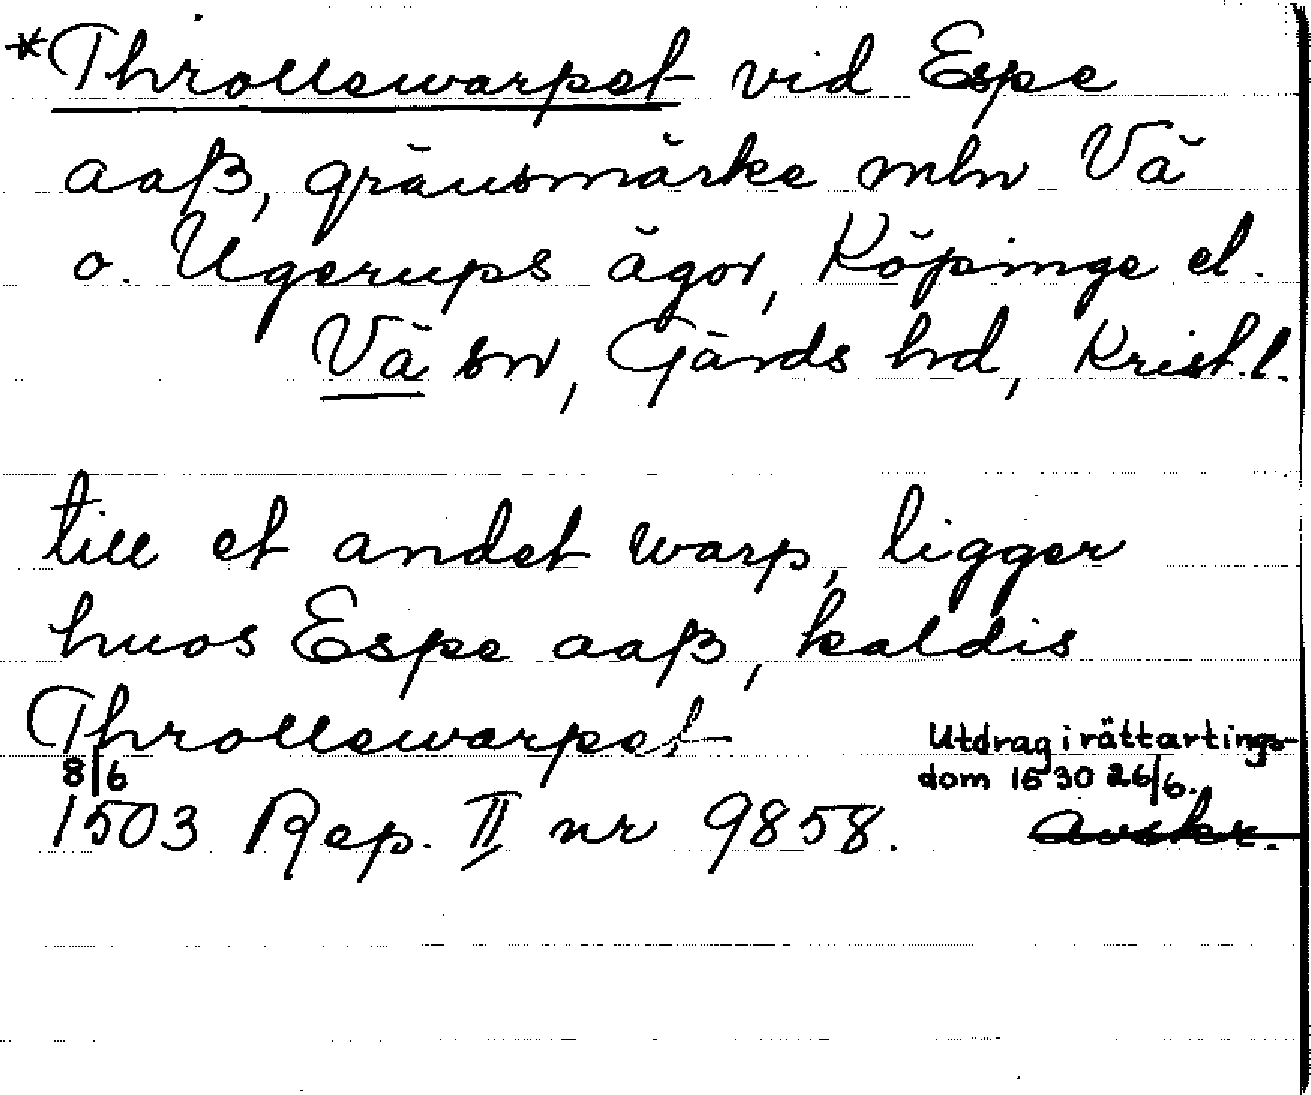 *Throllewarpet vid Espe
aaß, gränsmärke mln Vä
o. Ugerups ägor, Köpinge el.
Vä sn, Gärds hd, Krist.l.
till et andet warp, ligger
huos Espe aaß, kaldis
Throllewarpet
8/6
1503 Rep. II nr 9858.
Utdrag i rättartings-
dom 1530 26/6.
avskr.